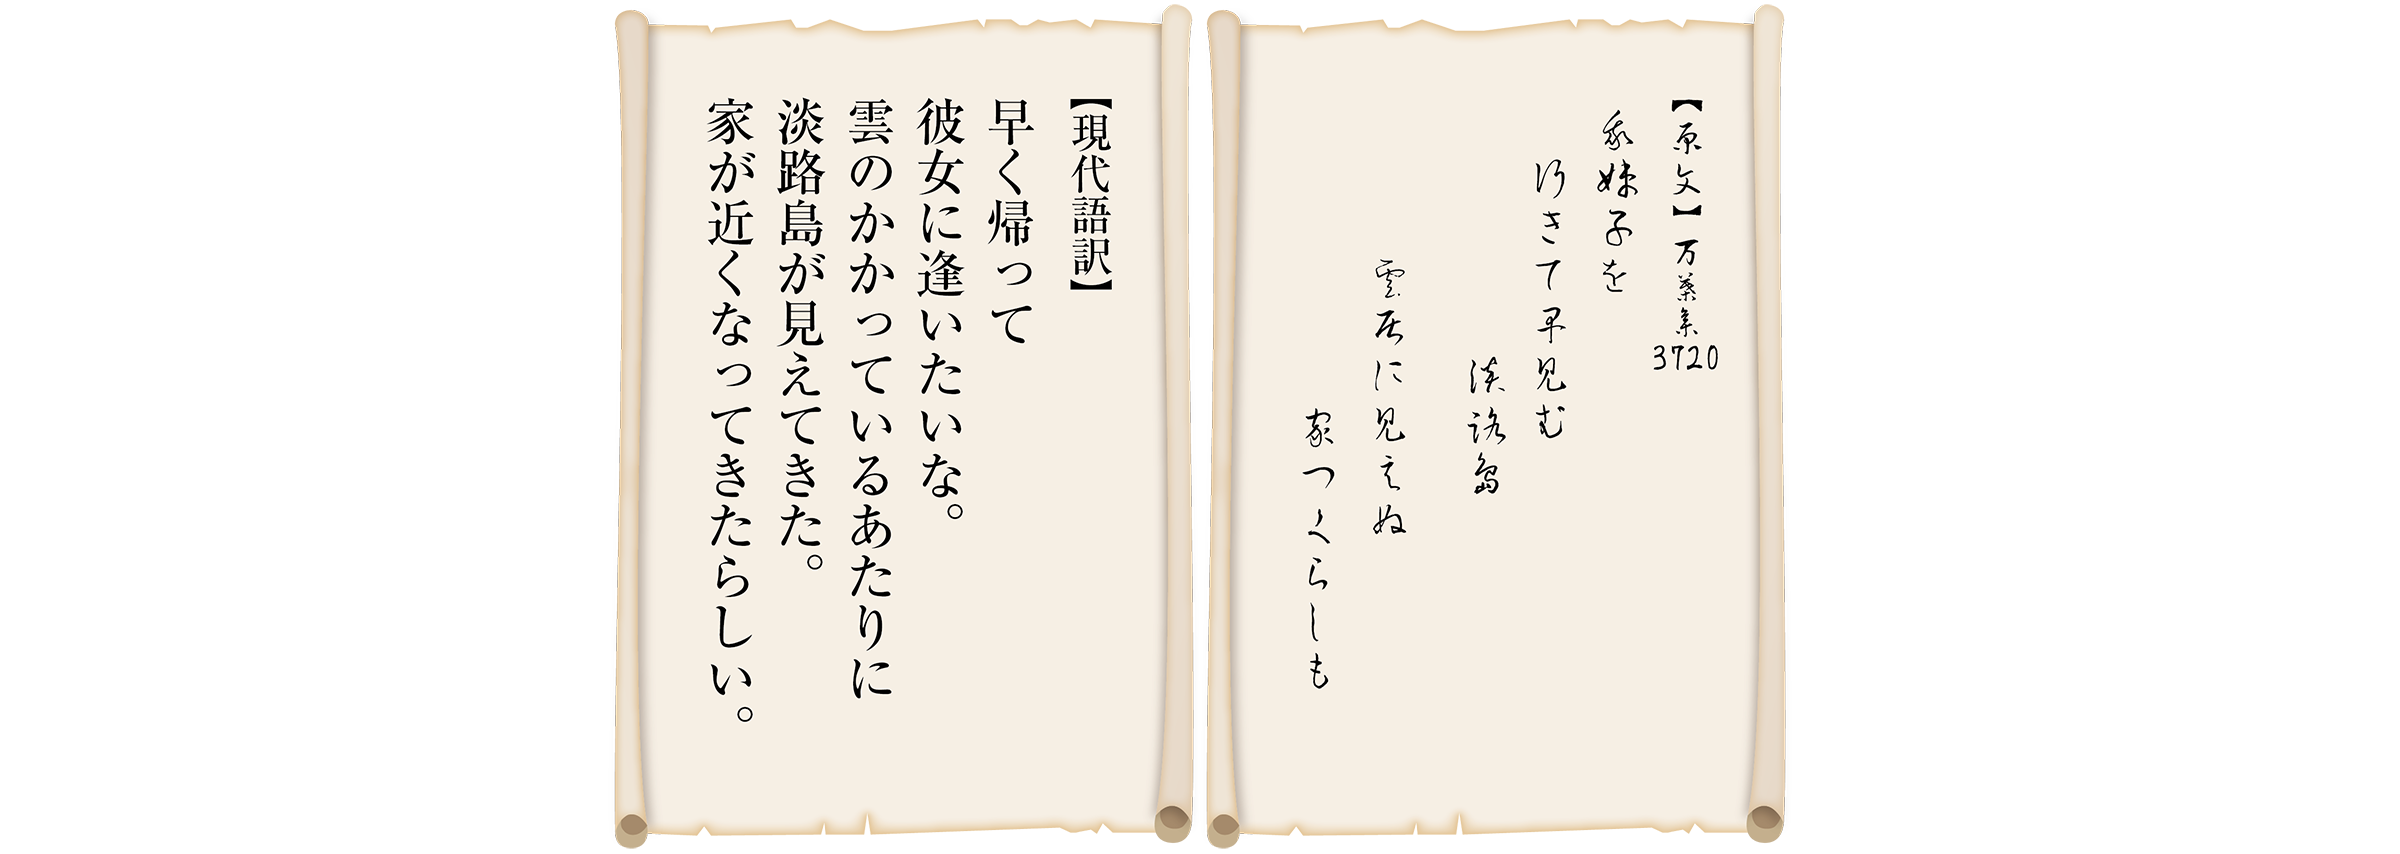 【原文】万葉集3720
我妹子を
行きて早見む
淡路島
雲居に見えぬ
家つくらしも
【現代語訳】
早く帰って
彼女に逢いたいな。
雲のかかっているあたりに
淡路島が見えてきた。
家が近くなってきたらしい。